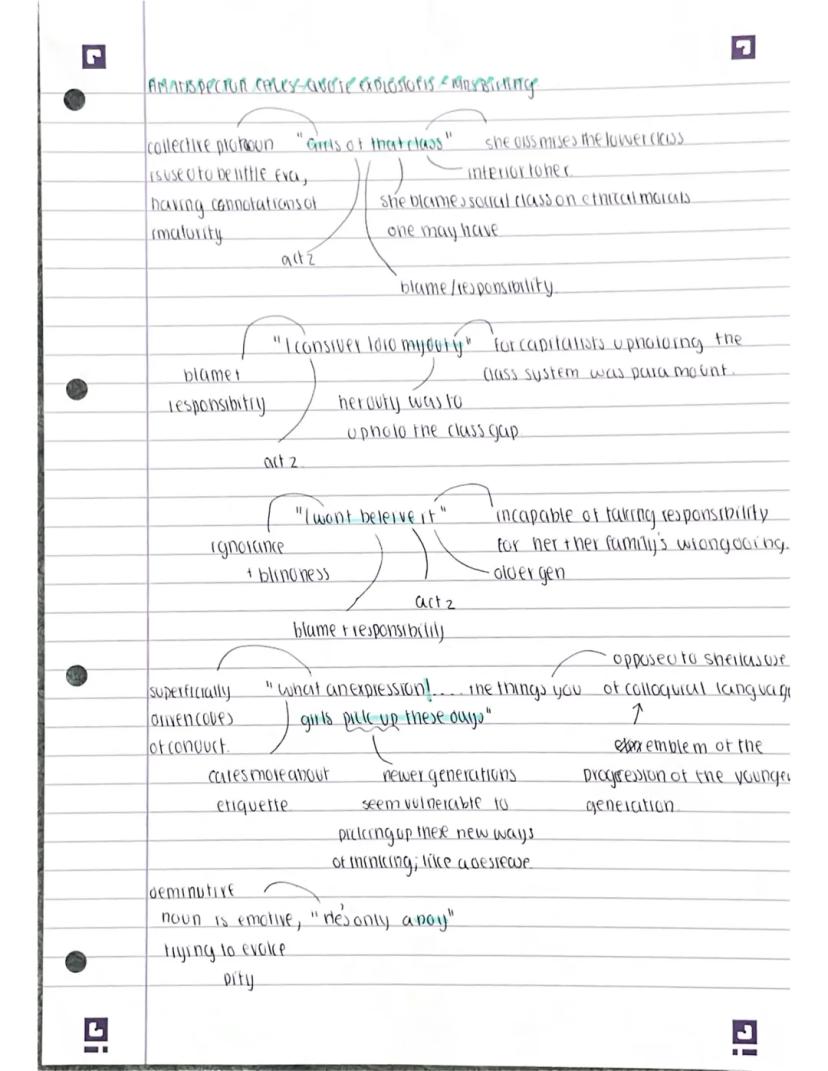 AN INSPECTOR CALLS - QUOTE EXPLOSIONS - MRS BIRLING
collective pronoun "Girls of that class" she dissmises the lower class
is used to belittle Eva, inferior to her
having connotations of she blames social class on ethical morals
imaturity one may have
act 2
blame/responsibility
"I consider I did my duty" for capitalists upholding the
blame + class system was paramount.
responsibility her duty was to
uphold the class gap
act 2
"I wont beleive it" incapable of taking responsibility
ignorance for her + her family's wrongdoing.
+ blindness older gen
act 2
blame + responsibility
opposed to sheilas use
superficially "what an expression!.... the things you of colloquial language
driven codes girls pick up these days"
of conduct. emblem of the
cares more about newer generations progression of the younger
etiquette seem vulnerable to generation
picking up these new ways
of thinking; like a desease
deminutive
noun is emotive, "He's only a boy"
trying to evoke
pity